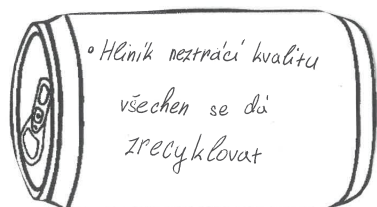 • Hliník neztrácí kvalitu
všechen se dá
zrecyklovat